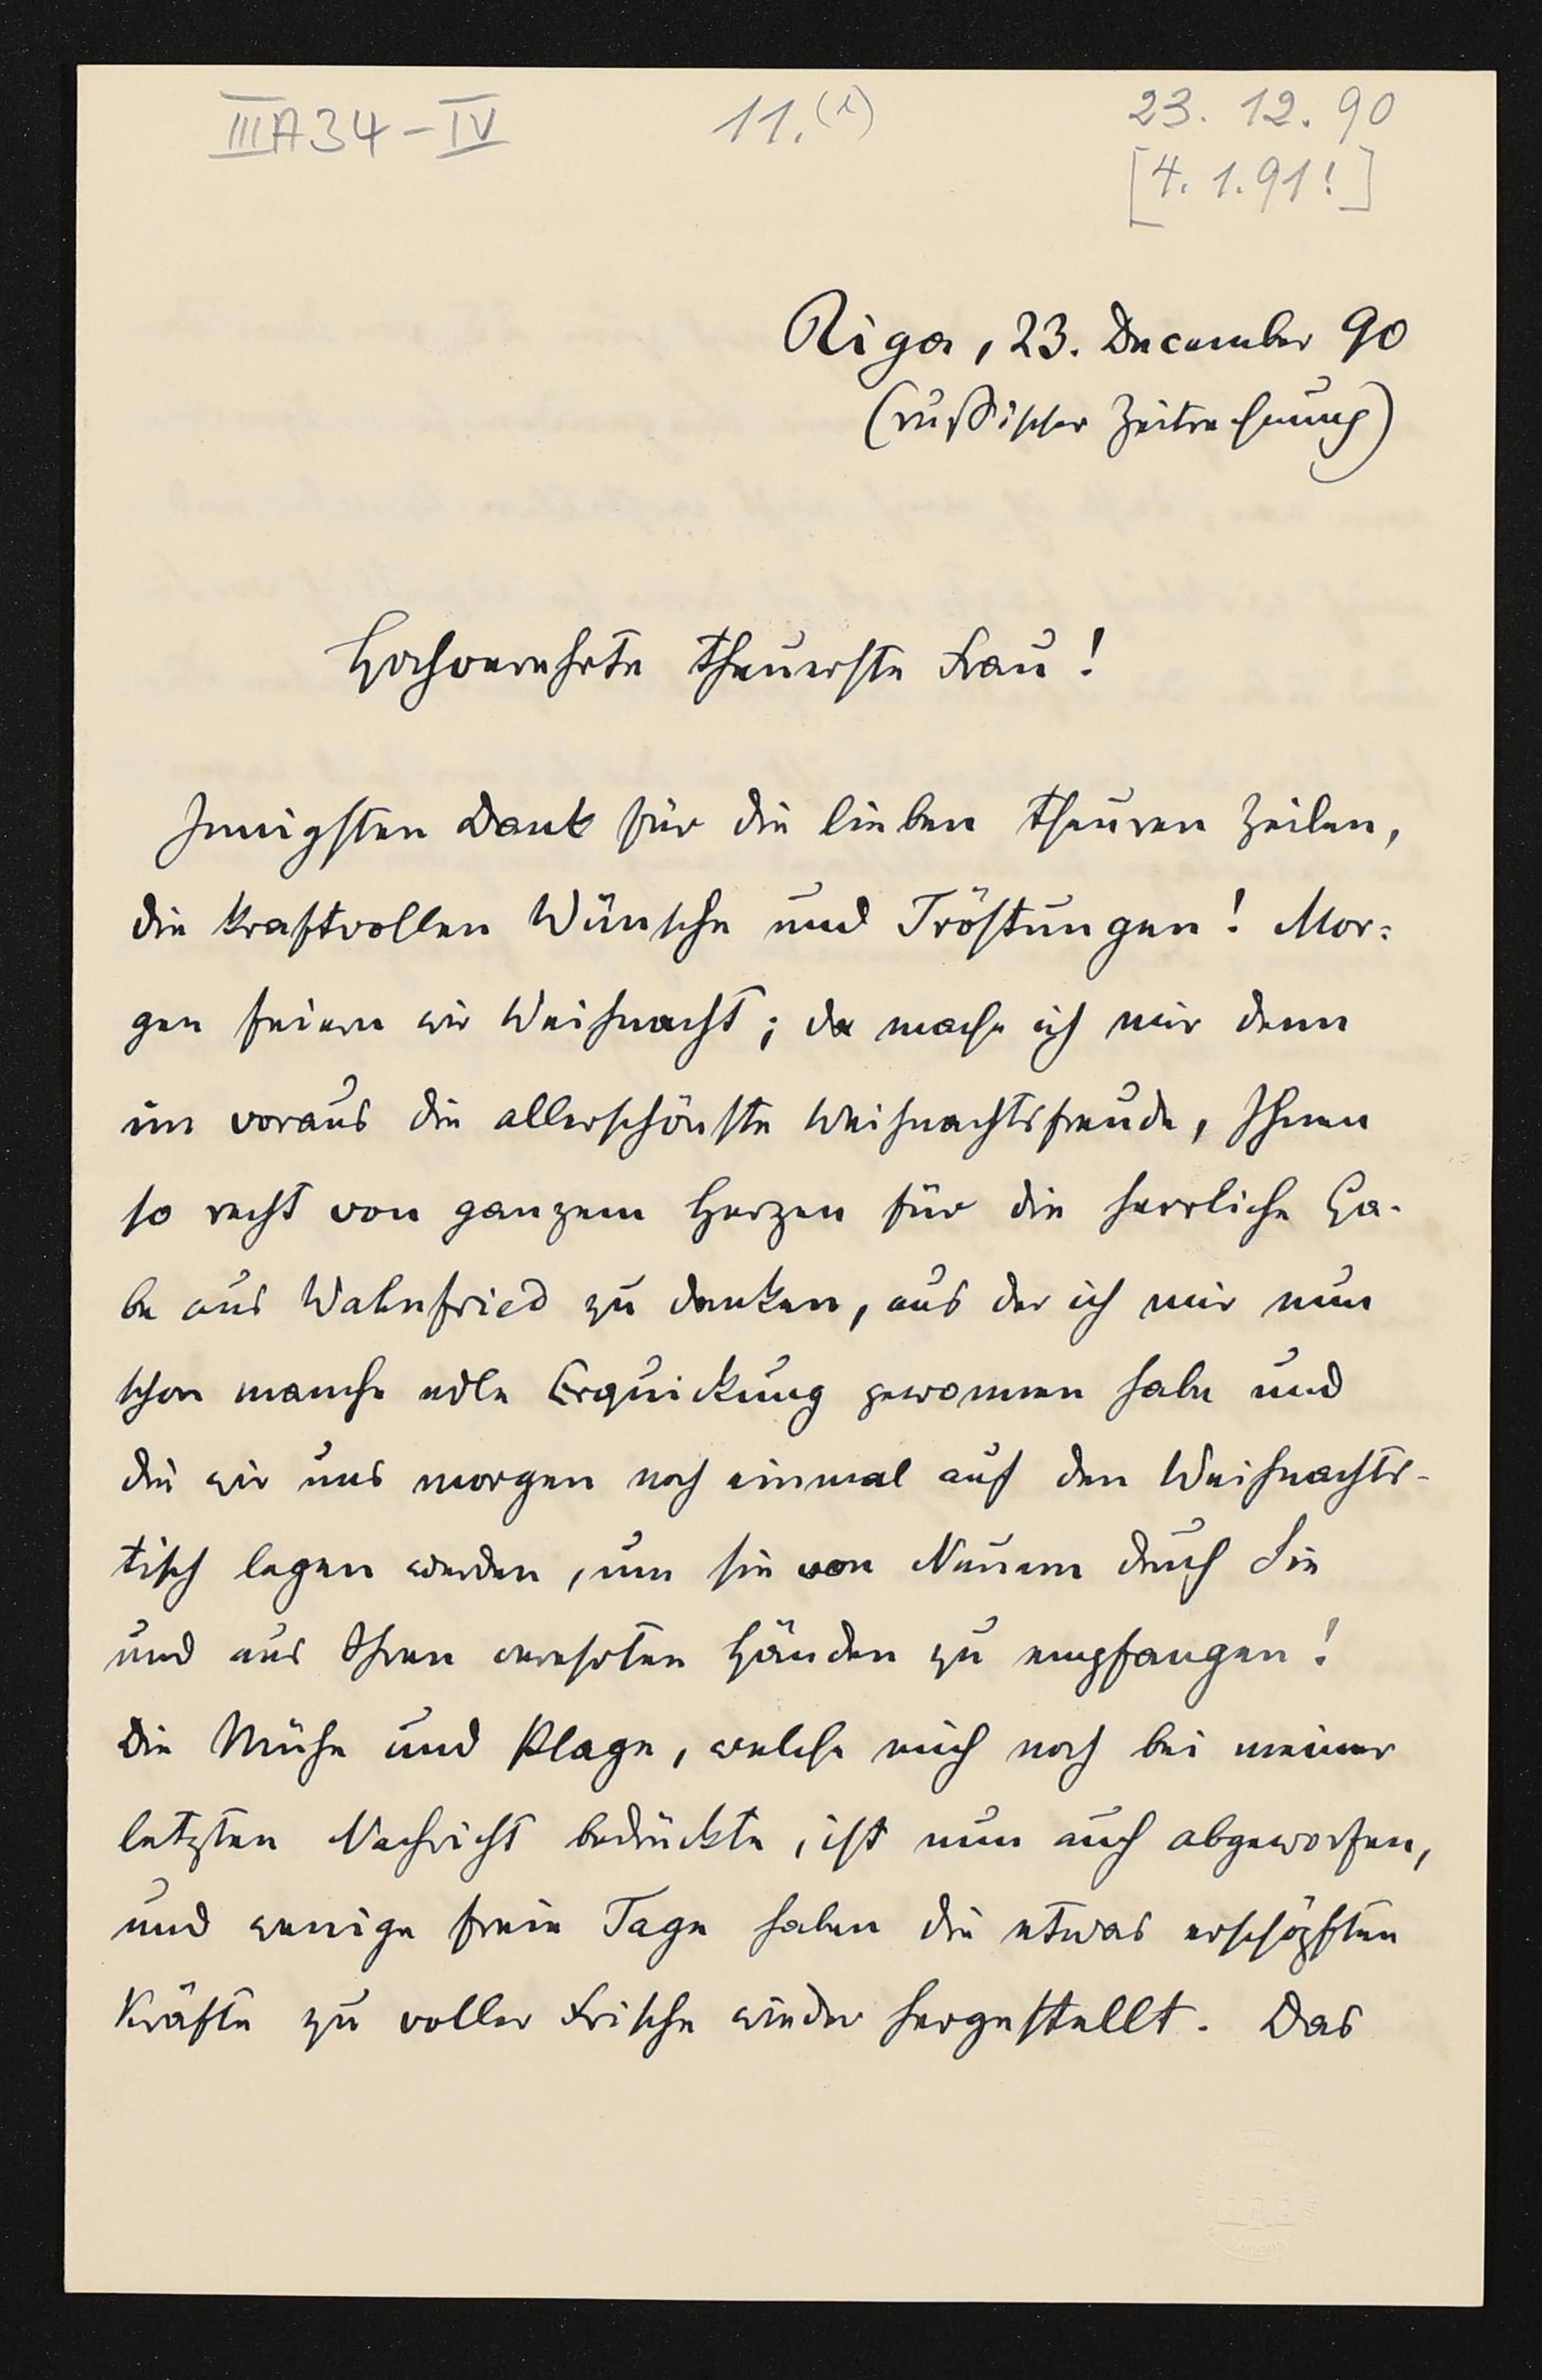 IIIA34-IV 11.(1) 23. 12. 90
[4. 1. 91!]
Riga, 23. December 90
(russischer Zeitrechnung)
Hochverehrte theuerste Frau!
Innigsten Dank für die lieben theuren Zeilen,
die kraftvollen Wünsche und Tröstungen! Mor-
gen feiern wir Weihnacht; da mache ich mir denn
im voraus die allerschönste Weihnachtsfreude, Ihnen
so recht von ganzem Herzen für die herrliche Ga-
be aus Wahnfried zu danken, aus der ich mir nun
schon manche edle Erquickung gewonnen habe und
die wir uns morgen noch einmal auf den Weihnachts-
tisch legen werden, um sie von Neuem durch Sie
und aus Ihren verehrten Händen zu empfangen!
Die Mühe und Plage, welche mich noch bei meiner
letzten Nachricht bedrückte, ist nun auch abgeworfen,
und wenige freie Tage haben die etwas erschöpften
Kräfte zu voller Frische wieder hergestellt. Das